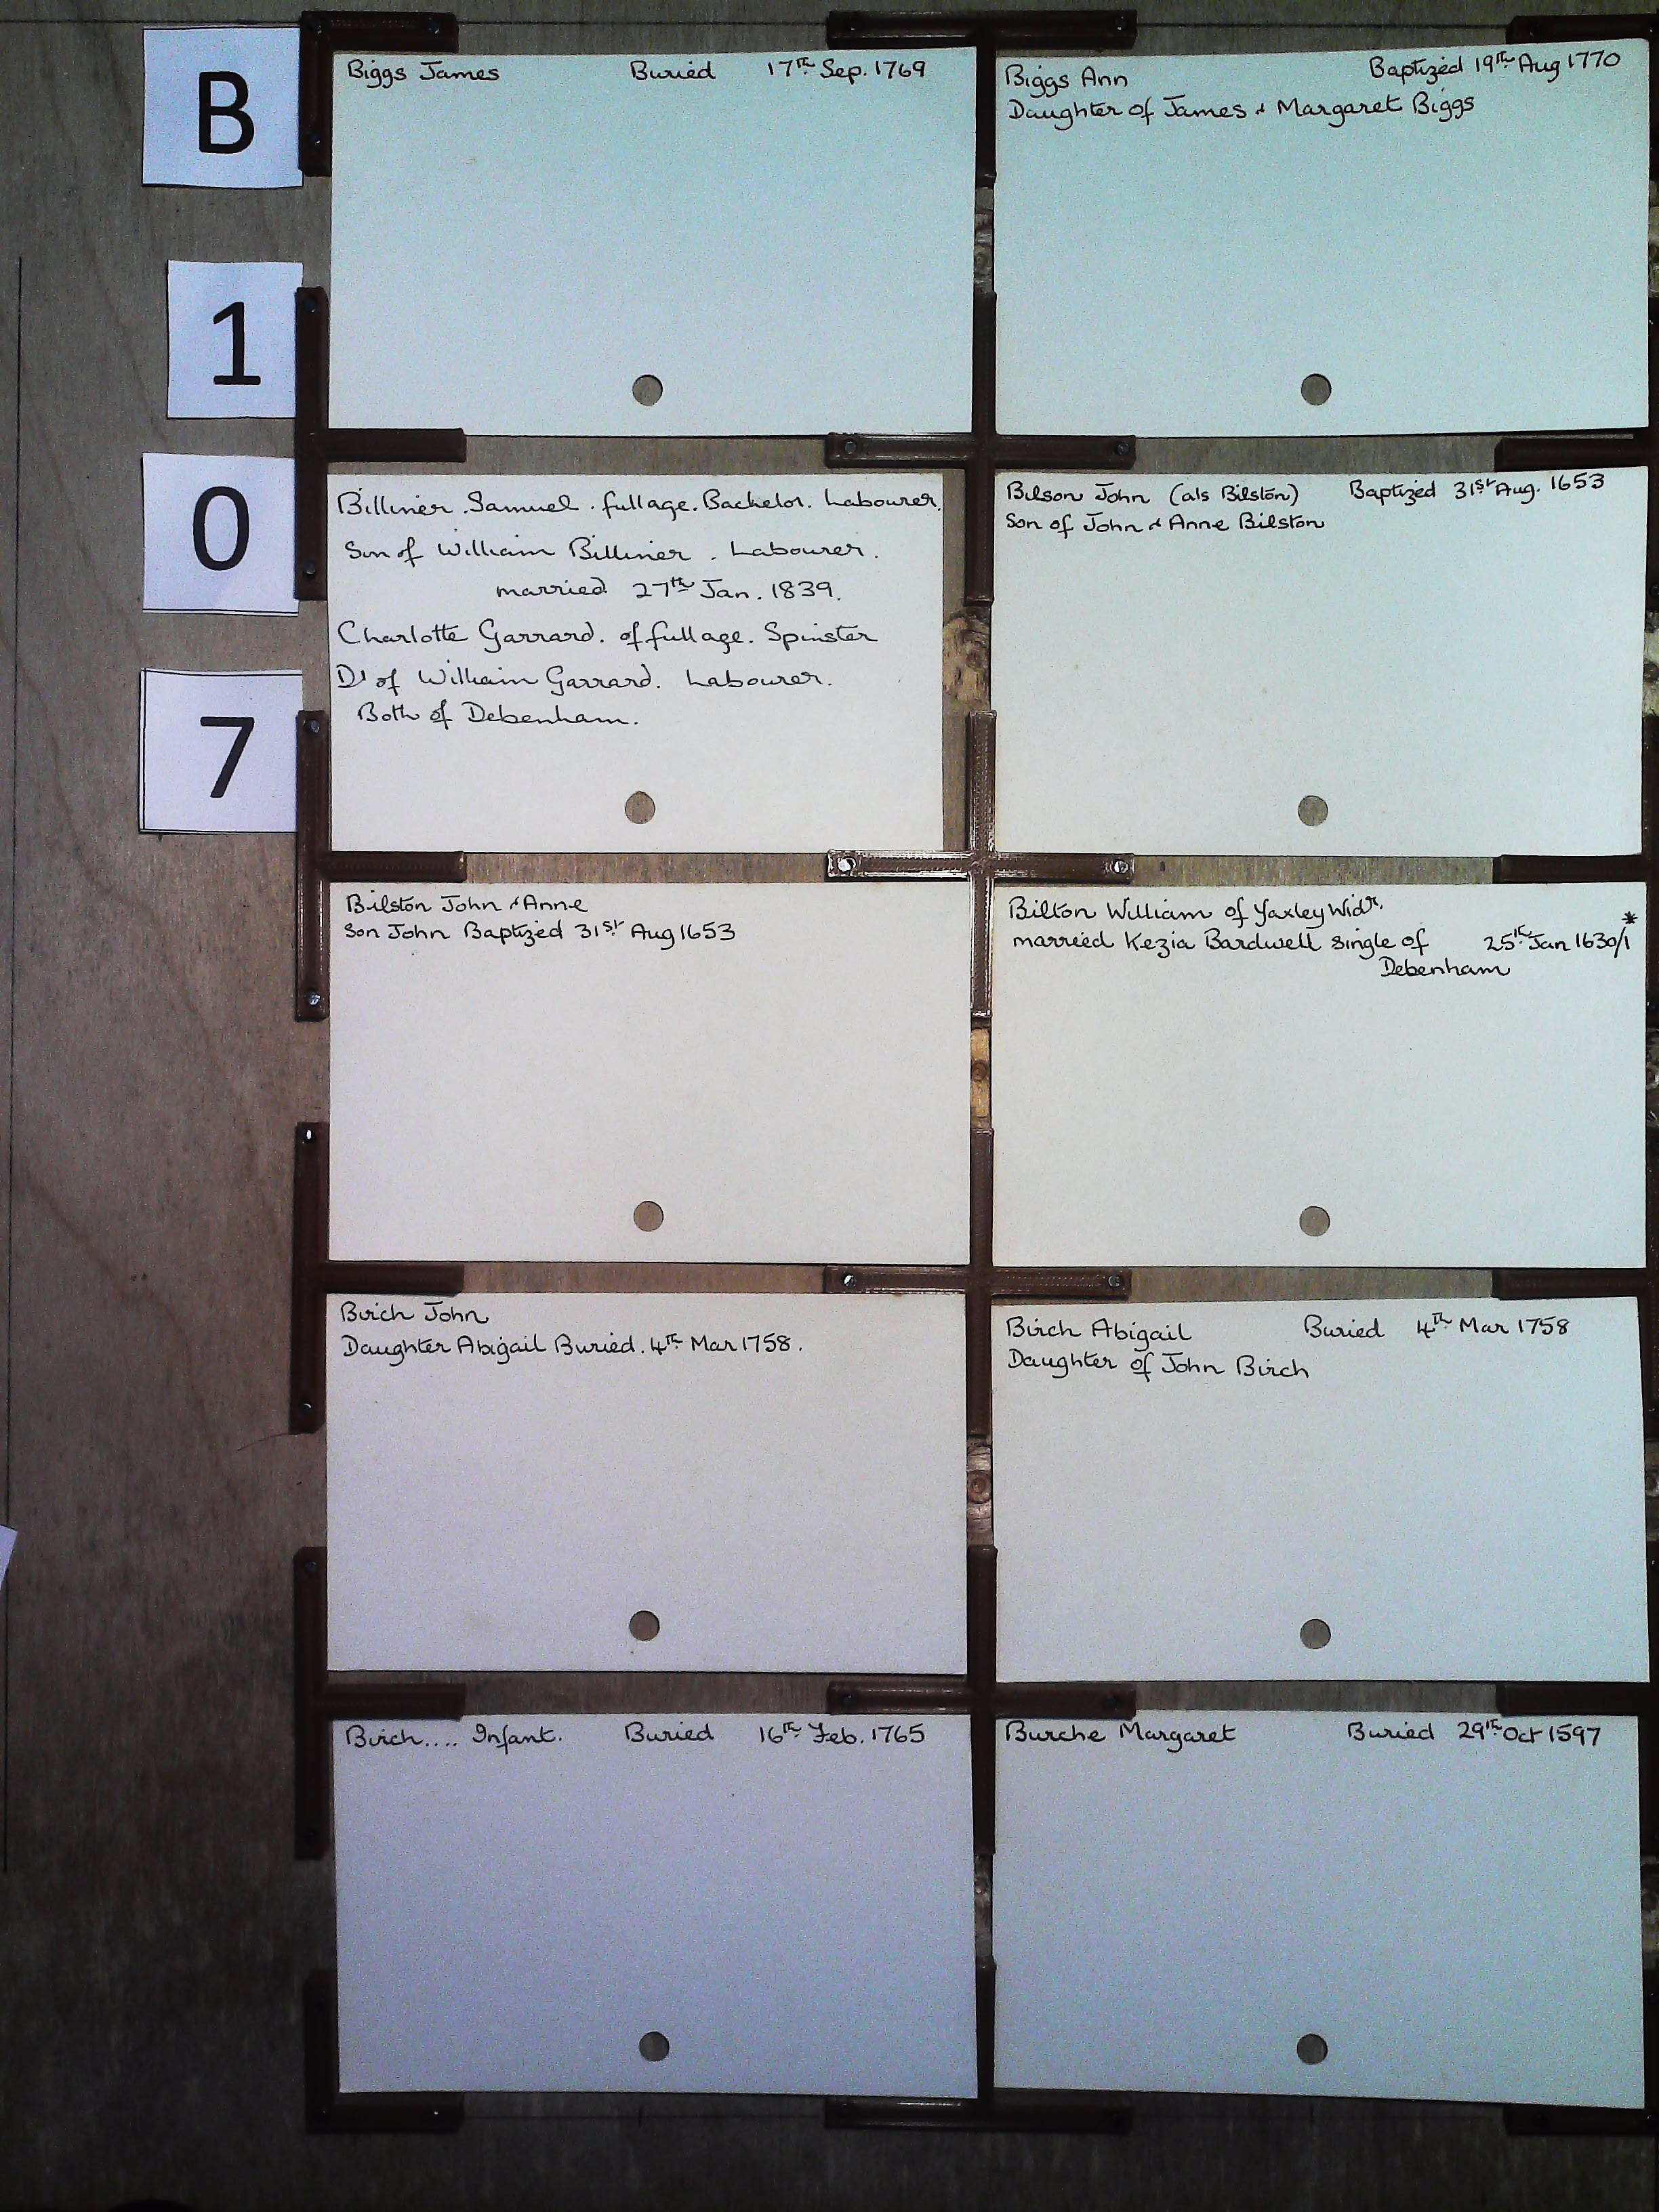 B
1
0
7
Biggs James Buried 17th Sep. 1769
Biggs Ann Baptized 19th Aug 1770
Daughter of James & Margaret Biggs
Billiner. Samuel. full age. Bachelor. Labourer.
Son of William Billiner. Labourer.
married 27th Jan. 1839.
Charlotte Garrard. of full age. Spinster
D' of William Garrard. Labourer.
Both of Debenham.
Bilson John (als Bilston) Baptized 31st Aug. 1653
Son of John & Anne Bilston
Bilston John & Anne
Son John Baptized 31st Aug 1653
Bilton William of Yaxley Widr.
married Kezia Bardwell single of 25th Jan 1630/1 *
Debenham
Birch John
Daughter Abigail Buried. 4th Mar 1758.
Birch Abigail Buried 4th Mar 1758
Daughter of John Birch
Birch.... Infant. Buried 16th Feb. 1765
Burche Margaret Buried 29th Oct 1597